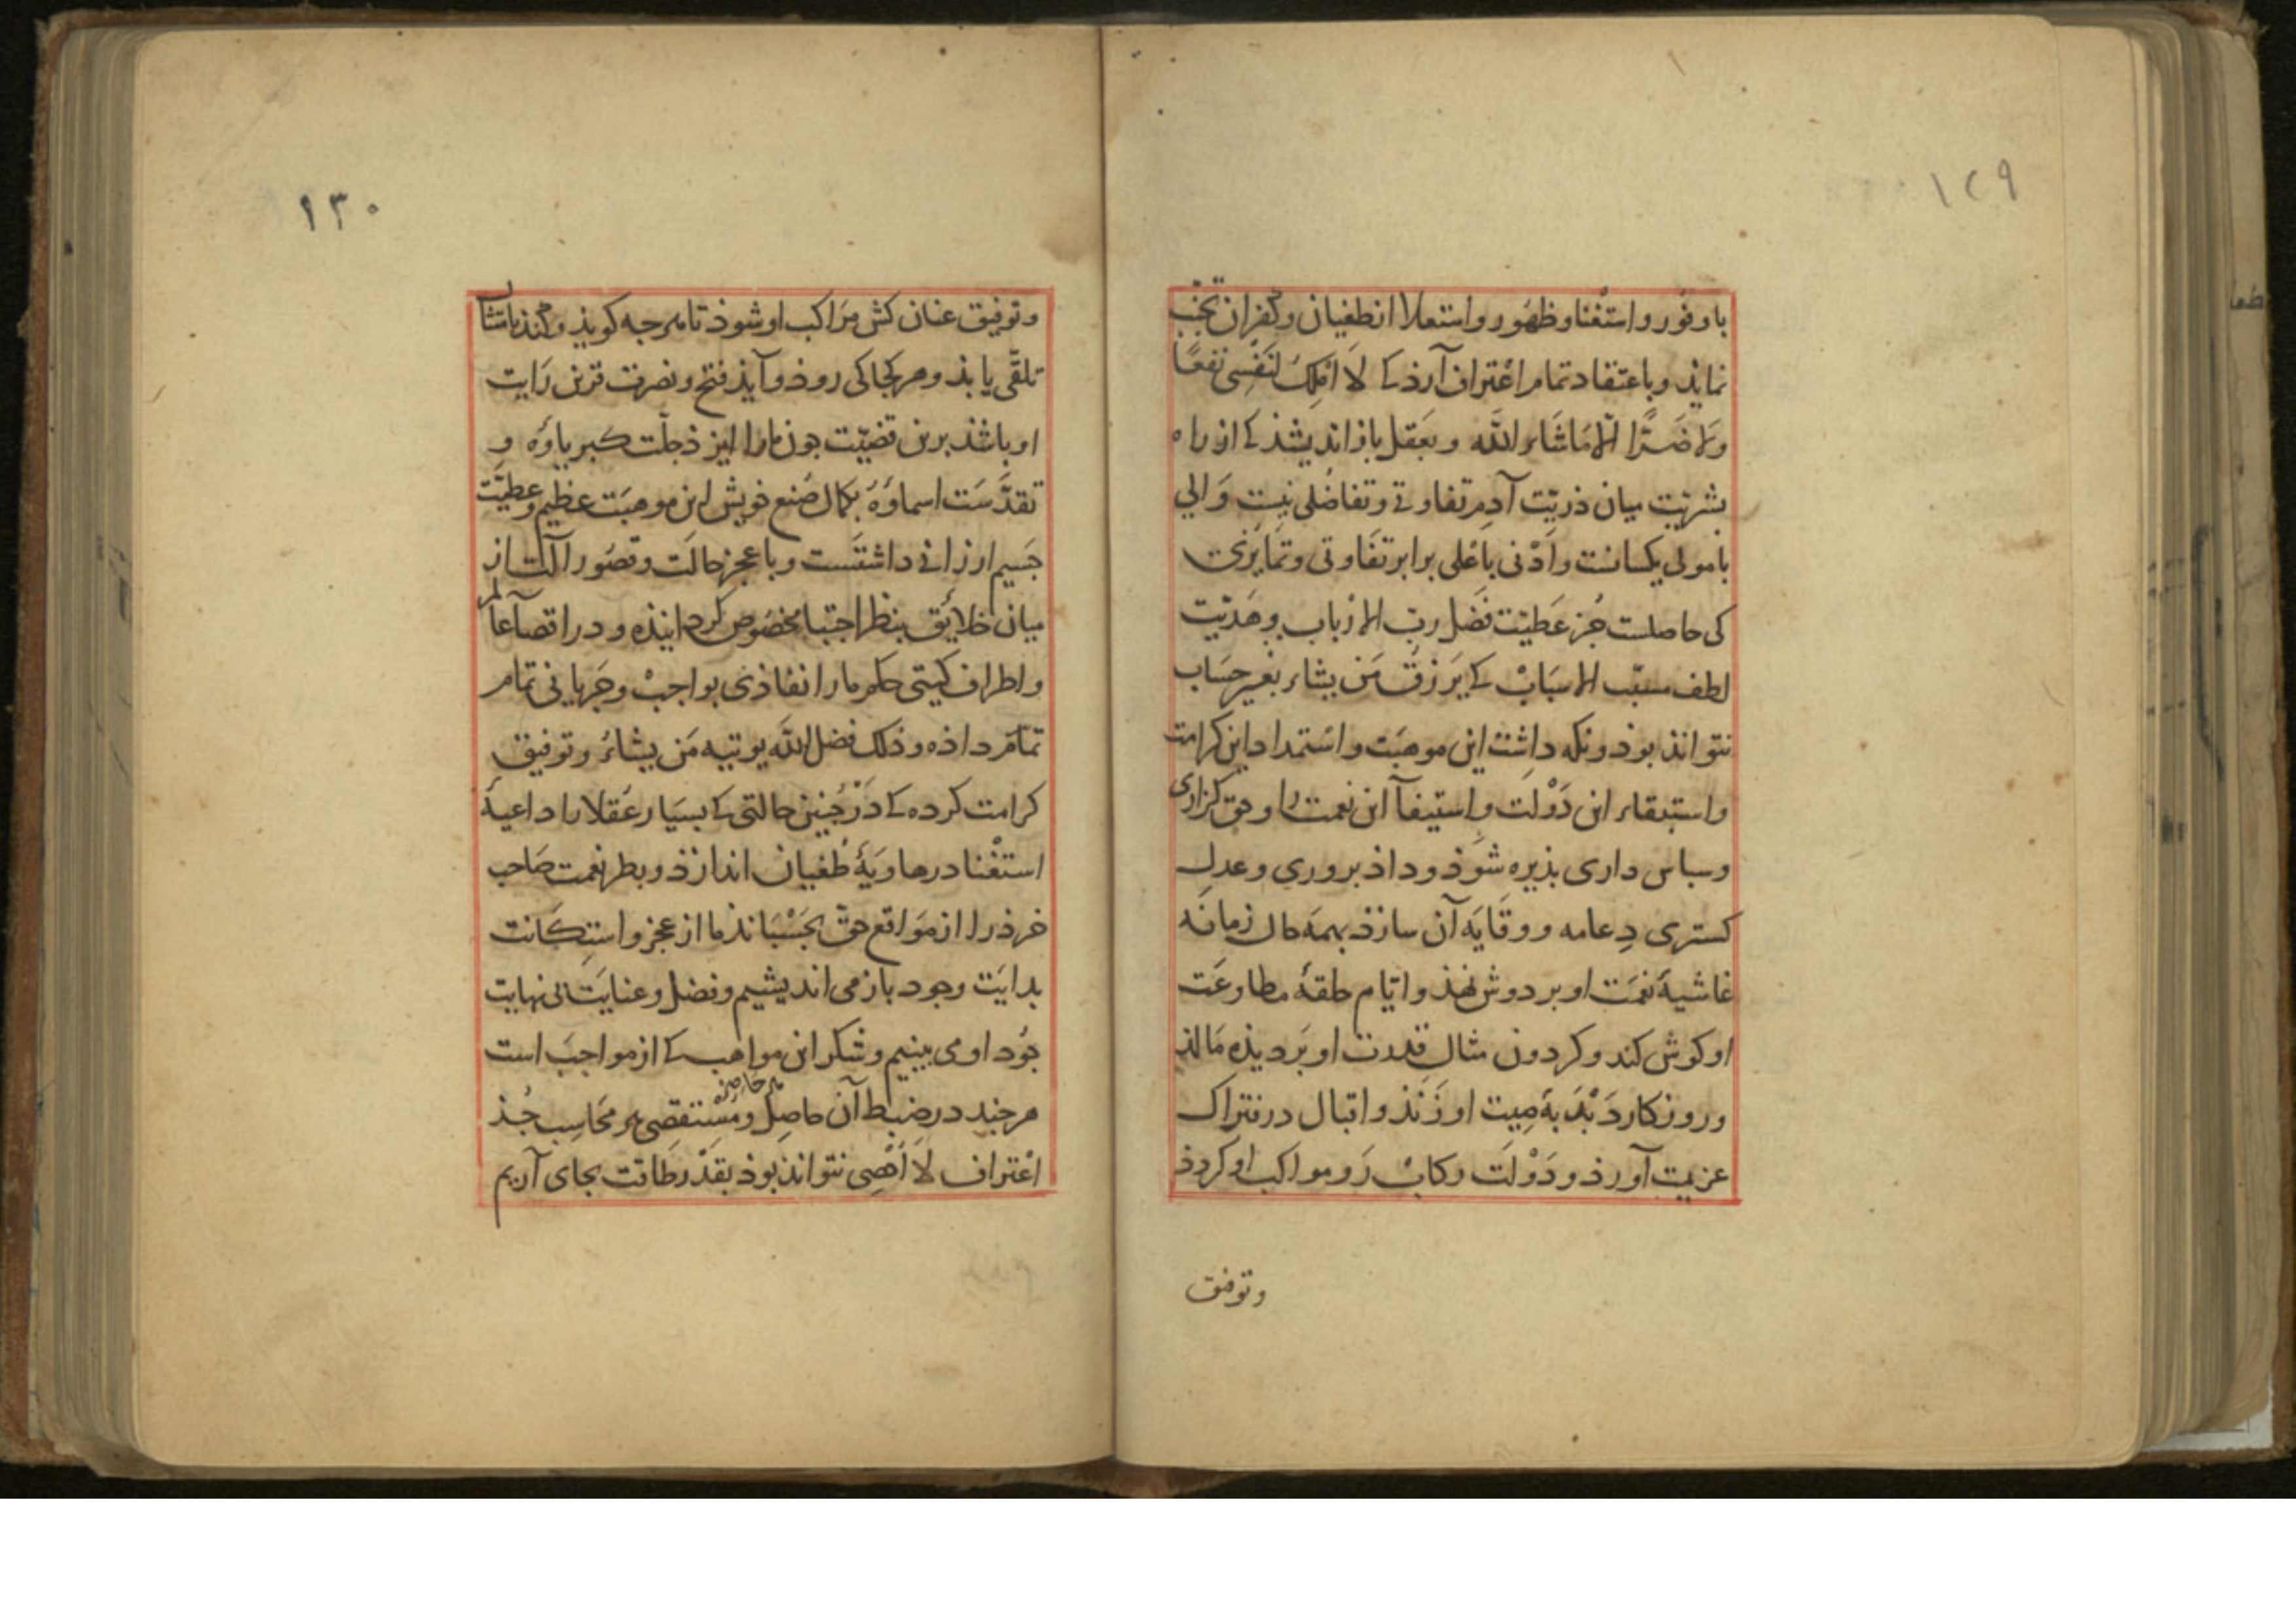 ١٢٩
با وفور و استغنا و ظهور و استعلا از طغیان و کفران تجنّب
نماید و باعتقاد تمام اعتراف آرذ کے لا املک لنفسی نفعًا
ولا ضرًّا الا ماشاء اللّه و بعقل باز اندیشذ کے از راه
بشریّت میان ذریّت آدم تفاوتے و تفاضلی نیست و الی
با مولی یکسانست و ادنی با اعلی برابر تفاوتی و تمایزی
کی حاصلست جز عطیّت فضل ربّ الارباب و هدیّت
لطف مسبّب الاسباب کے یرزق من یشاء بغیر حساب
نتواند بوذ و نکه داشت این موهبت و استمداد این کرامت
و استبقاء این دولت و استیفآ این نعمت را و حق کزاری
و سباس داری بذیره شوذ و داذ بروری و عدل
کستری دعامه و وقایه آن سازذ بهمه حال زمانه
غاشیهٔ نعمت او بر دوش نهذ و ایّام حلقهٔ مطاوعت
او کوش کند و کردون مثال قدرت او بر دیذه مالذ
و روزکار دبدبهٔ صیت او زند و اقبال در فتراک
عزیمت آورذ و دولت رکاب رو مواکب او کردذ
وتوفیق
١٣٠
وتوفیق عنان کش مراکب او شوذ تا هرجه کویذ و کنذ بامتثال
تلقّی یابذ و هر کجا کی روذ و آیذ فتح و نصرت قرین رایت
او باشذ برین قضیّت جون ما را ایزذ جلّت کبریاؤه و
تقدّست اسماؤه بکمال صنع خویش این موهبت عظیم و عطیّت
جسیم ارزانی داشتست و با عجز حالت و قصور آلت از
میان خلایق بنظر اجتبا مخصوص کردانیذه و در اقصآ عالم
و اطراف کیتی حکم ما را نفاذی بواجب و جریانی تمام
تمام داذه و ذلک فضل اللّه یوتیه من یشاءُ و توفیق
کرامت کرده کے در جنین حالتی کے بسیار عقلا را داعیهٔ
استغنا در هاویهٔ طغیان اندازذ و بطر نعمت صاحب
خرذ را از مواقع حقّ بجسباند ما از عجز و استکانت
بدایت وجود باز می اندیشیم و فضل و عنایت بی نهایت
جود او می بینیم و شکر این مواهب کے از مواجب است
هرجند در ضبط آن حاصل هر حاصر و مستقصی هر محاسب جُذ
اعتراف لا اُحصی نتواند بوذ بقدر طاقت بجای آریم